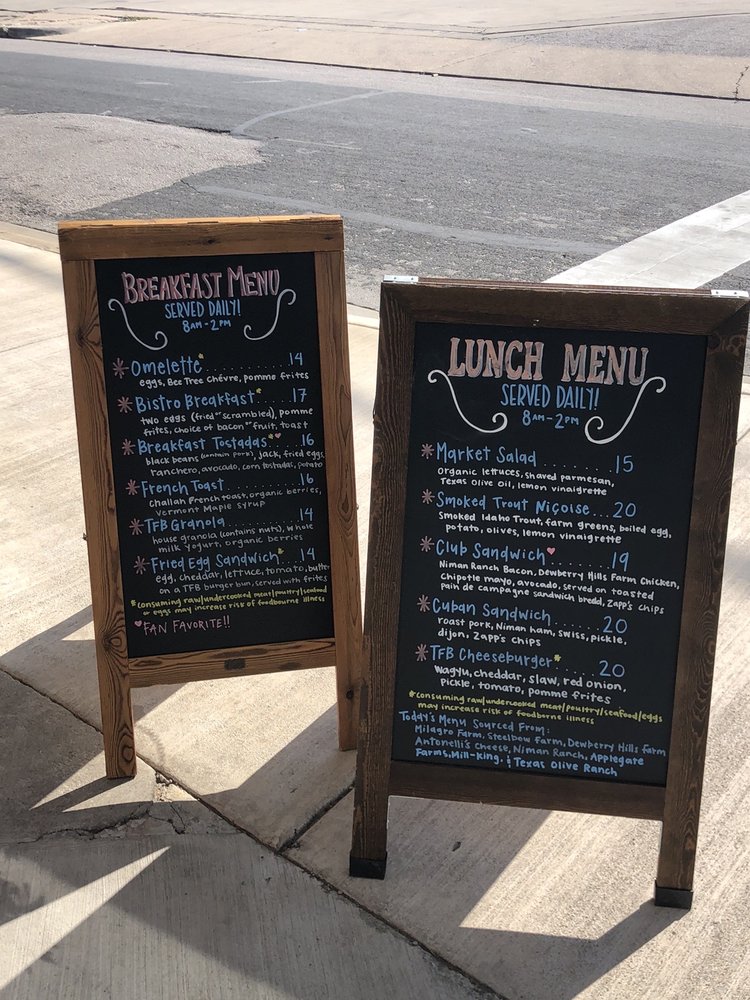 BREAKFAST MENU
SERVED DAILY!
8AM-2PM
*Omelette* ........ 14
eggs, Bee Tree Chévre, pomme frites
*Bistro Breakfast* .... 17
two eggs (fried or scrambled), pomme
frites, choice of bacon or fruit, toast
*Breakfast Tostadas*♥ .... 16
black beans (contain pork), jack, fried eggs,
ranchero, avocado, corn tostadas, potato
*French Toast ........ 16
Challah french toast, organic berries,
Vermont Maple Syrup
*TFB Granola ........ 14
house granola (contains nuts), whole
milk yogurt, organic berries
*Fried Egg Sandwich* .... 14
egg, cheddar, lettuce, tomato, butter
on a TFB burger bun, served with frites
*consuming raw/undercooked meat/poultry/seafood
or eggs may increase risk of foodborne illness
♥FAN FAVORITE!!
LUNCH MENU
SERVED DAILY!
8AM-2PM
*Market Salad ........ 15
Organic lettuces, shaved parmesan,
Texas Olive Oil, lemon vinaigrette
*Smoked Trout Niçoise ... 20
Smoked Idaho Trout, farm greens, boiled egg,
potato, olives, lemon vinaigrette
*Club Sandwich♥ ....... 19
Niman Ranch Bacon, Dewberry Hills Farm Chicken,
Chipotle mayo, avocado, served on toasted
pain de campagne sandwich bread, Zapp's chips
*Cuban Sandwich ...... 20
roast pork, Niman ham, swiss, pickle,
dijon, Zapp's chips
*TFB Cheeseburger* .... 20
Wagyu, cheddar, slaw, red onion,
pickle, tomato, pomme frites
*consuming raw/undercooked meat/poultry/seafood/eggs
may increase risk of foodborne illness
Today's Menu Sourced From:
Milagro Farm, Steelbow Farm, Dewberry Hills Farm
Antonelli's Cheese, Niman Ranch, Applegate
Farms, Mill-King, & Texas Olive Ranch